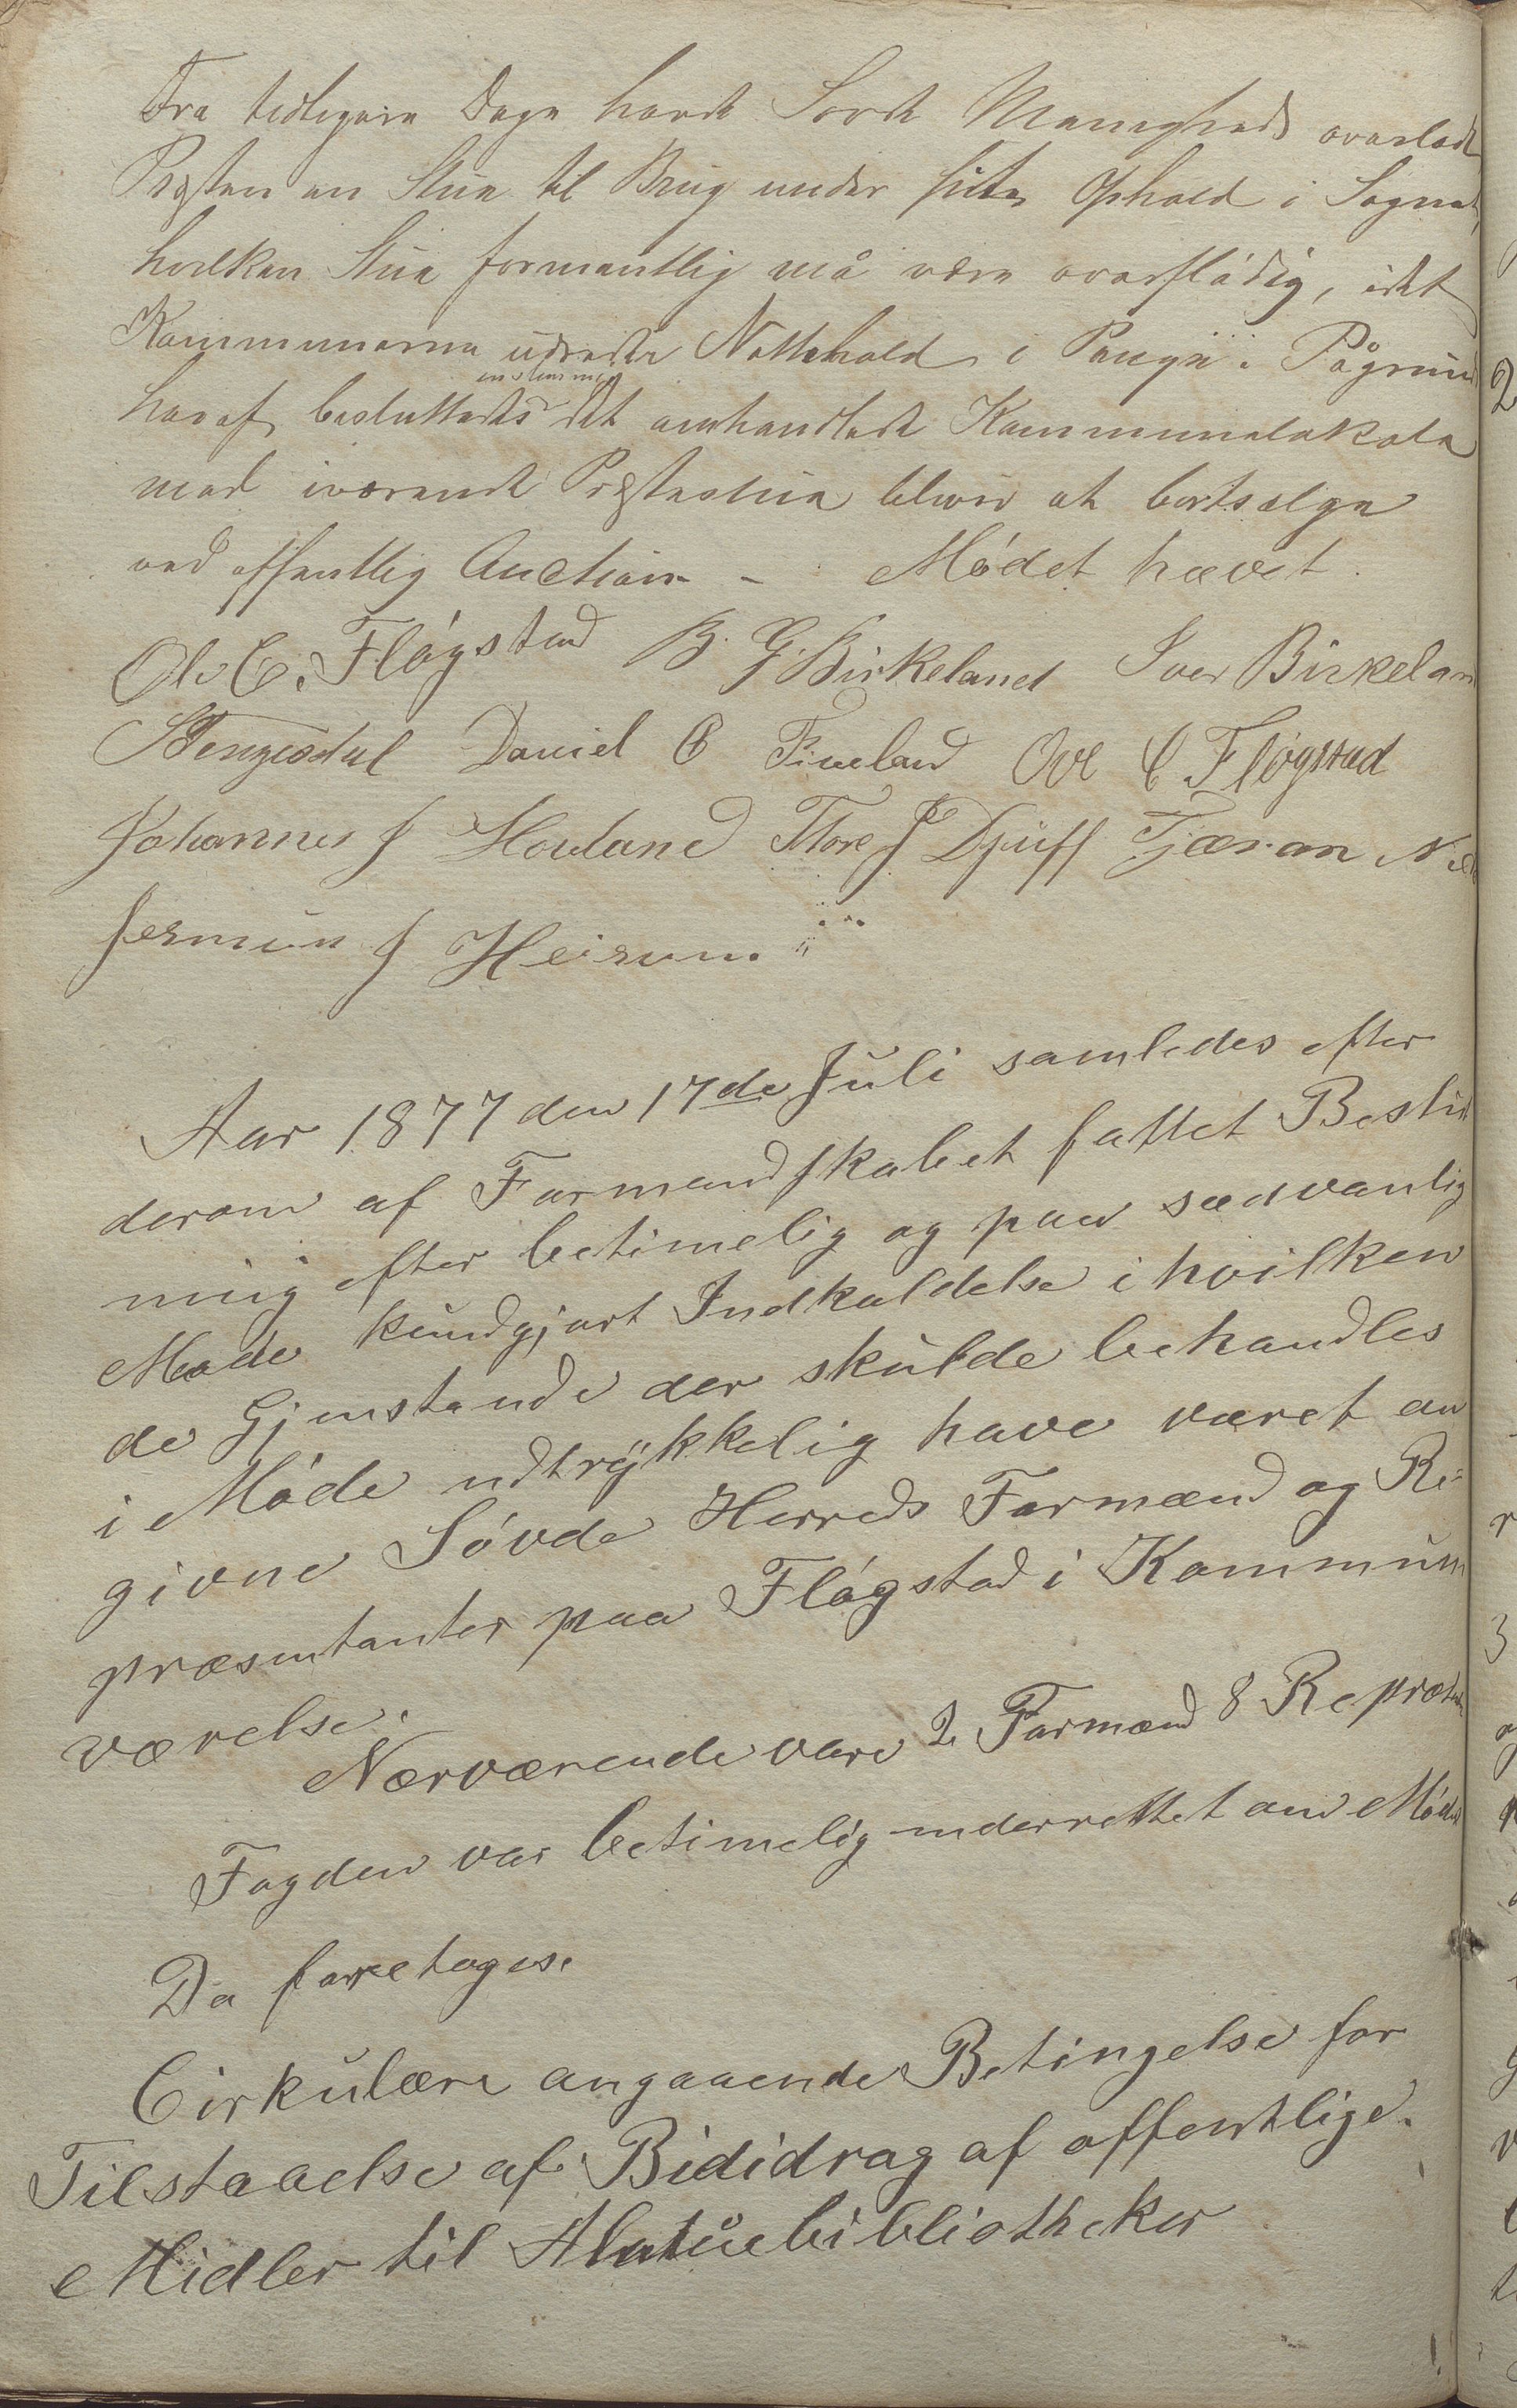 Fra tidligere Dage havde Sovde Menigheds overladt
Presten en Stue til Brug under sitte Ophold i Sognet,
hvilken Stue formentlig må være overflådig, idet
Kommunerne udreder Nattehold i Penge. Pågrund
heraf besluttedes enstemmig det omhandlede Kommunelokale
med iværende Prestestue bliver at bortsælge
ved offentlig Auction - Mødet hævet.
Ole C. Fløgstad B. G. Birkeland Iver Birkelan
Daniel C Fiveland Ove C Fløgstad
Johannes J Hovland Tore J Djuff Tjæran
J Heirum.
Aar 1877 den 17de Juli samledes efter
derom af Formandskabet fattet Beslut
ning efter betimelig og paa sædvanlig
Made kundgjort Indkaldelse i hvilken
de Gjenstande der skulde behandles
i Møde udtrykkelig have været an
givne Søvde Herreds Formænd og Re-
præsentanter paa Fløgstad i Kommun
værelse.
Nærværende vare 2 Formænd 8 Repræsen
Fogden var betimelig underrettet om Mødet
Da foretoges.
Cirkulære angaaende Betingelse for
Tilstaaelse af Bididrag af offentlige
Midler til Almuebibliotheker